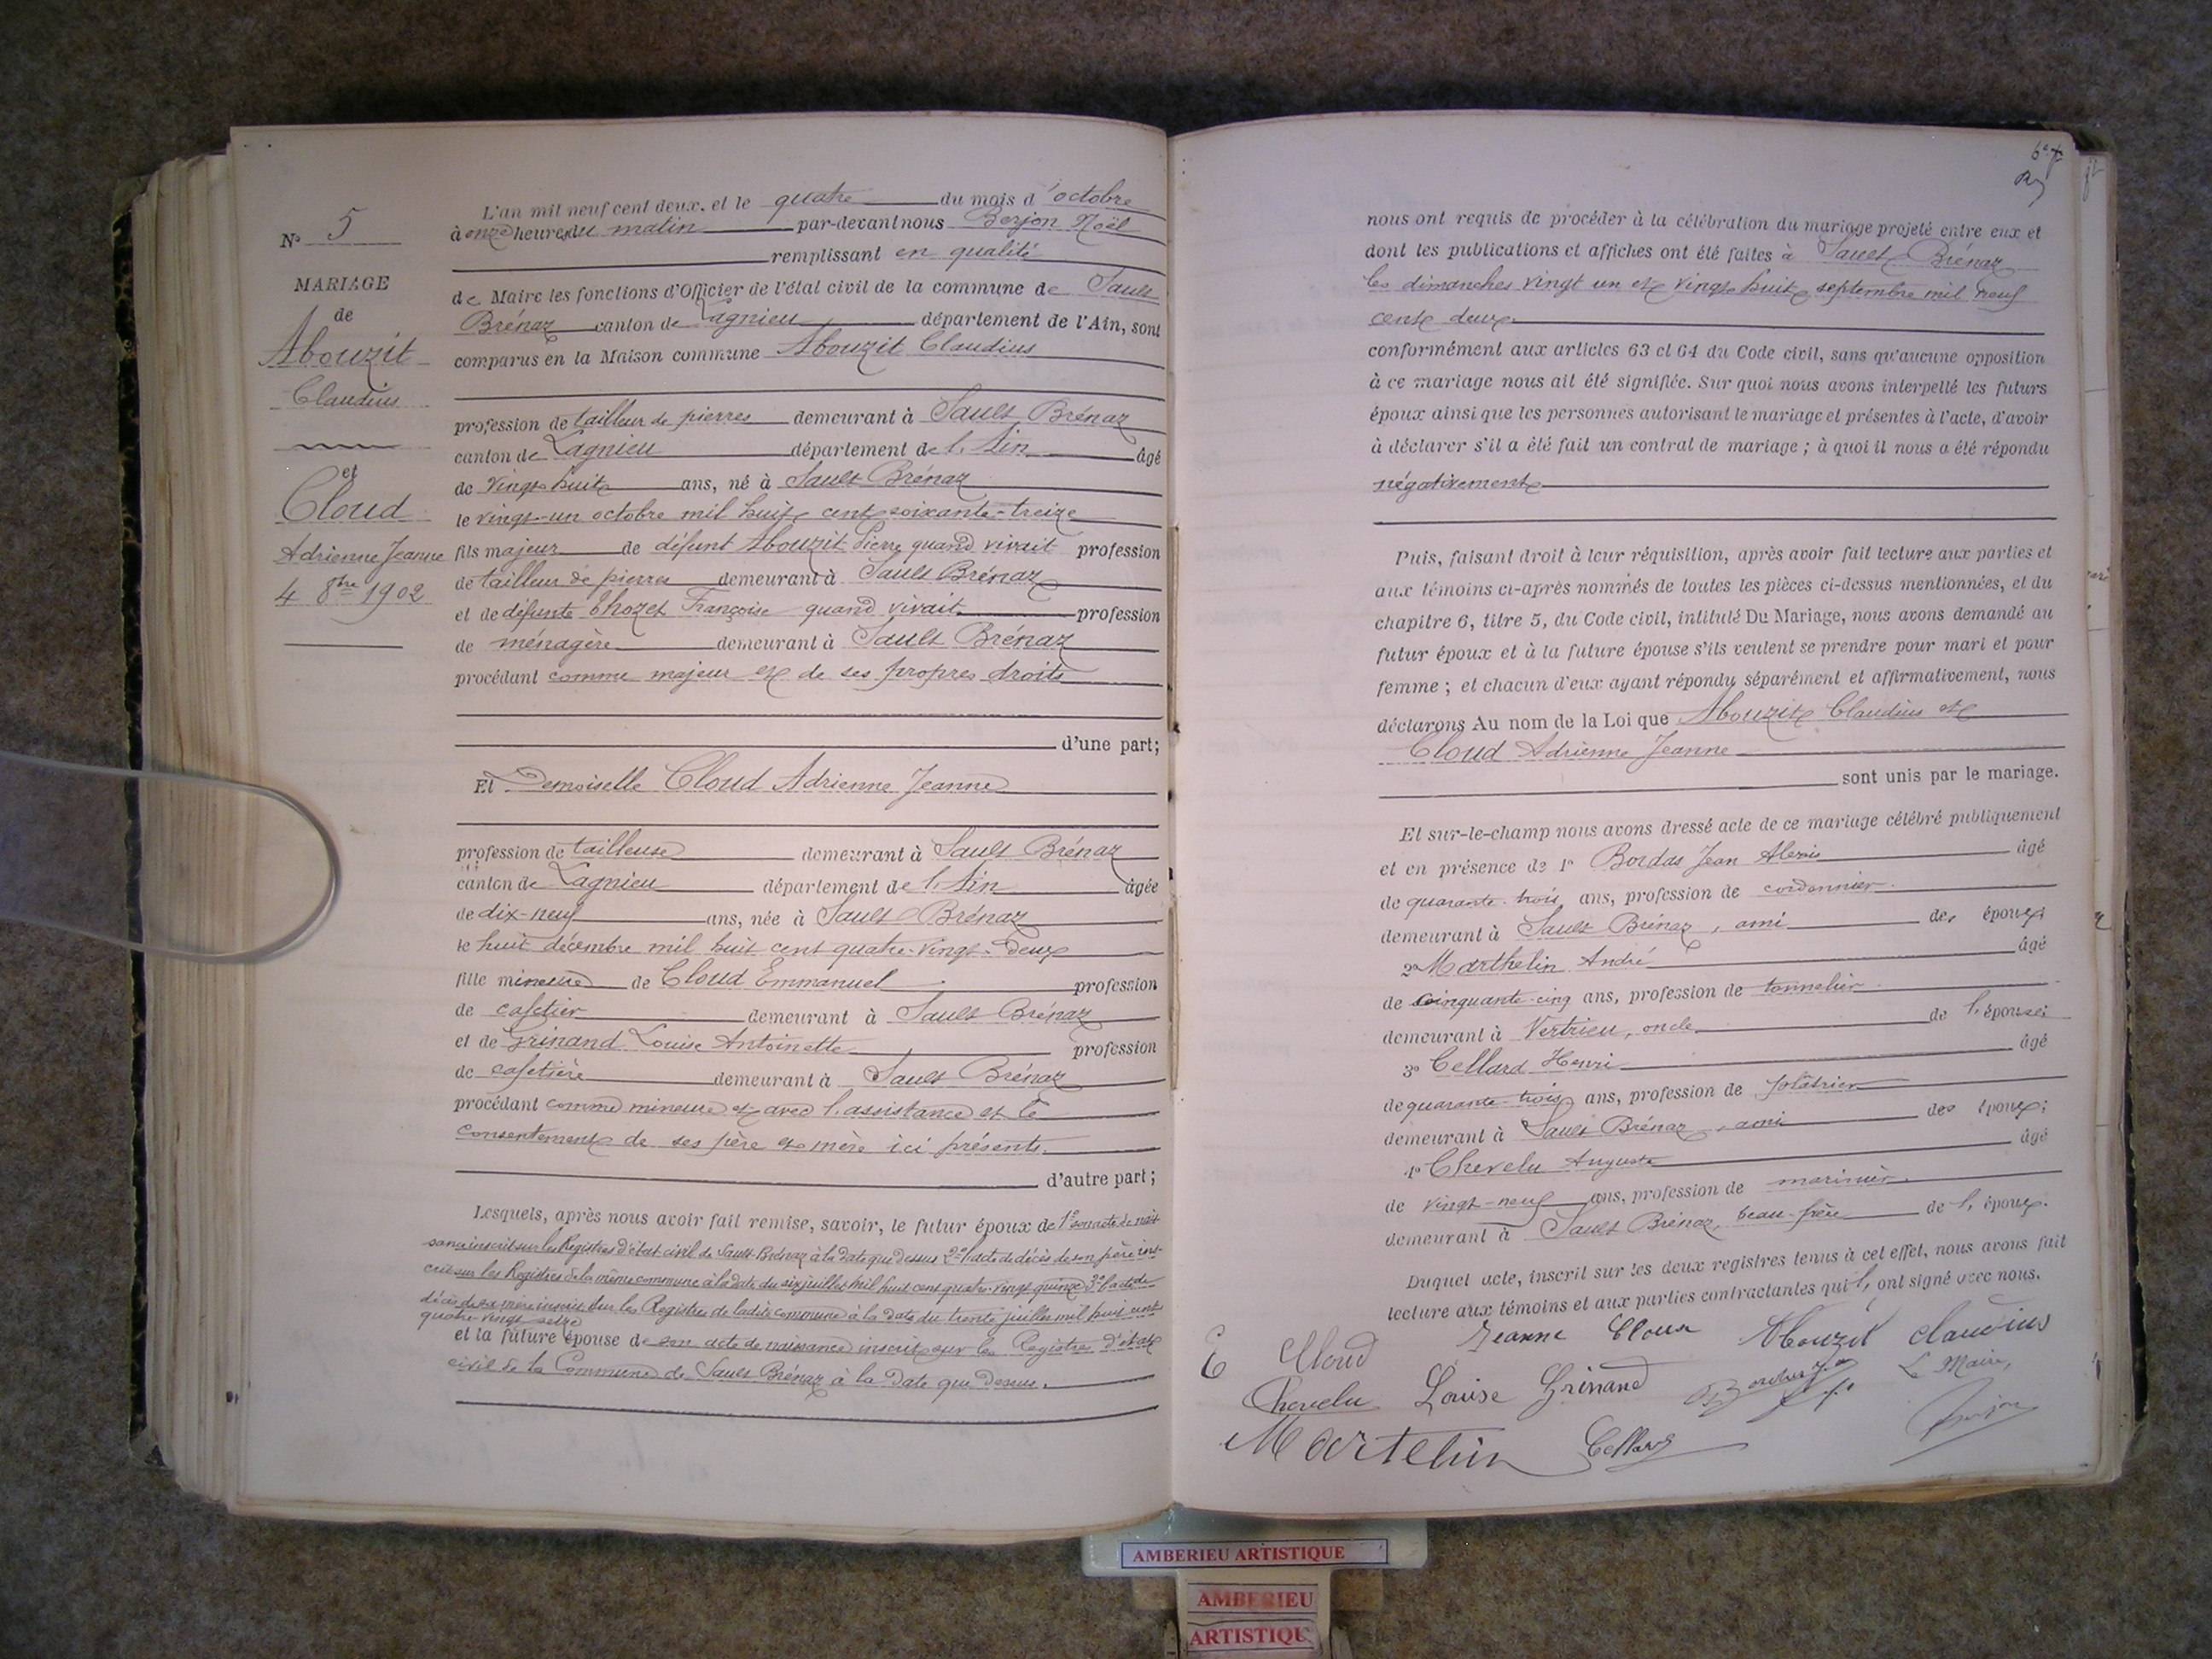 N° 5
MARIAGE
de
Abouzit
Claudius
et
Cloud
Adrienne Jeanne
4 8bre 1902
L'an mil neuf cent deux. et le quatre du mois d'octobre
à onze heures du matin par-devant nous Berjon Noël
remplissant en qualité
de Maire les fonctions d'Officier de l'état civil de la commune de Sault
Brénaz canton de Lagnieu département de l'Ain, sont
comparus en la Maison commune Abouzit Claudius
profession de tailleur de pierres demeurant à Sault Brénaz
canton de Lagnieu département de l'Ain âgé
de vingt huit ans, né à Sault Brénaz
le vingt-un octobre mil huit cent soixante-treize
fils majeur de défunt Abouzit Pierre quand vivait profession
de tailleur de pierres demeurant à Sault Brénaz
et de défunte Chozet Françoise quand vivait profession
de ménagère demeurant à Sault Brénaz
procédant comme majeur et de ses propres droits
d'une part;
Et Demoiselle Cloud Adrienne Jeanne
profession de tailleuse demeurant à Sault Brénaz
canton de Lagnieu département de l'Ain âgée
de dix-neuf ans, née à Sault Brénaz
le huit décembre mil huit cent quatre-vingt-deux
fille mineure de Cloud Emmanuel profession
de cafetier demeurant à Sault Brénaz
et de Grinand Louise Antoinette profession
de cafetière demeurant à Sault Brénaz
procédant comme mineure et avec l'assistance et le
consentement de ses père et mère ici présents.
d'autre part;
Lesquels, après nous avoir fait remise, savoir, le futur époux de 1° son acte de nais-
sance inscrit sur les Registres d'état civil de Sault-Brénaz à la date que dessus 2° l'acte de décès de son père ins-
crit sur les Registres de la même commune à la date du six juillet mil huit cent quatre-vingt quinze 3° l'acte de
décès de sa mère inscrit sur les Registres de ladite commune à la date du trente juillet mil huit cent
quatre-vingt seize
et la future épouse de son acte de naissance inscrit sur les Registres d'état
civil de la Commune de Sault Brénaz à la date que dessus.
nous ont requis de procéder à la célébration du mariage projeté entre eux et
dont les publications et affiches ont été faites à Sault Brénaz
les dimanches vingt un et vingt huit septembre mil neuf
cent deux
conformément aux articles 63 et 64 du Code civil, sans qu'aucune opposition
à ce mariage nous ait été signifiée. Sur quoi nous avons interpellé les futurs
époux ainsi que les personnes autorisant le mariage et présentes à l'acte, d'avoir
à déclarer s'il a été fait un contrat de mariage ; à quoi il nous a été répondu
négativement
Puis, faisant droit à leur réquisition, après avoir fait lecture aux parties et
aux témoins ci-après nommés de toutes les pièces ci-dessus mentionnées, et du
chapitre 6, titre 5, du Code civil, intitulé Du Mariage, nous avons demandé au
futur époux et à la future épouse s'ils veulent se prendre pour mari et pour
femme ; et chacun d'eux ayant répondu séparément et affirmativement, nous
déclarons Au nom de la Loi que Abouzit Claudius et
Cloud Adrienne Jeanne
sont unis par le mariage.
Et sur-le-champ nous avons dressé acte de ce mariage célébré publiquement
et en présence de 1° Bordas Jean Alexis âgé
de quarante-trois ans, profession de cordonnier
demeurant à Sault Brénaz, ami des époux;
2° Marthelin André âgé
de cinquante-cinq ans, profession de tonnelier
demeurant à Vertrieu, oncle de l'épouse;
3° Cellard Henri âgé
de quarante-trois ans, profession de plâtrier
demeurant à Sault Brénaz, ami des époux;
4° Chevelu Auguste âgé
de vingt-neuf ans, profession de marinier
demeurant à Sault Brénaz, beau-frère de l'époux.
Duquel acte, inscrit sur les deux registres tenus à cet effet, nous avons fait
lecture aux témoins et aux parties contractantes qui l'ont signé avec nous.
E Cloud Jeanne Cloud Abouzit Claudius
Chevelu Louise Grinand Bordas Le Maire,
Martelin Cellard Berjon
AMBERIEU ARTISTIQUE
AMBERIEU
ARTISTIQU